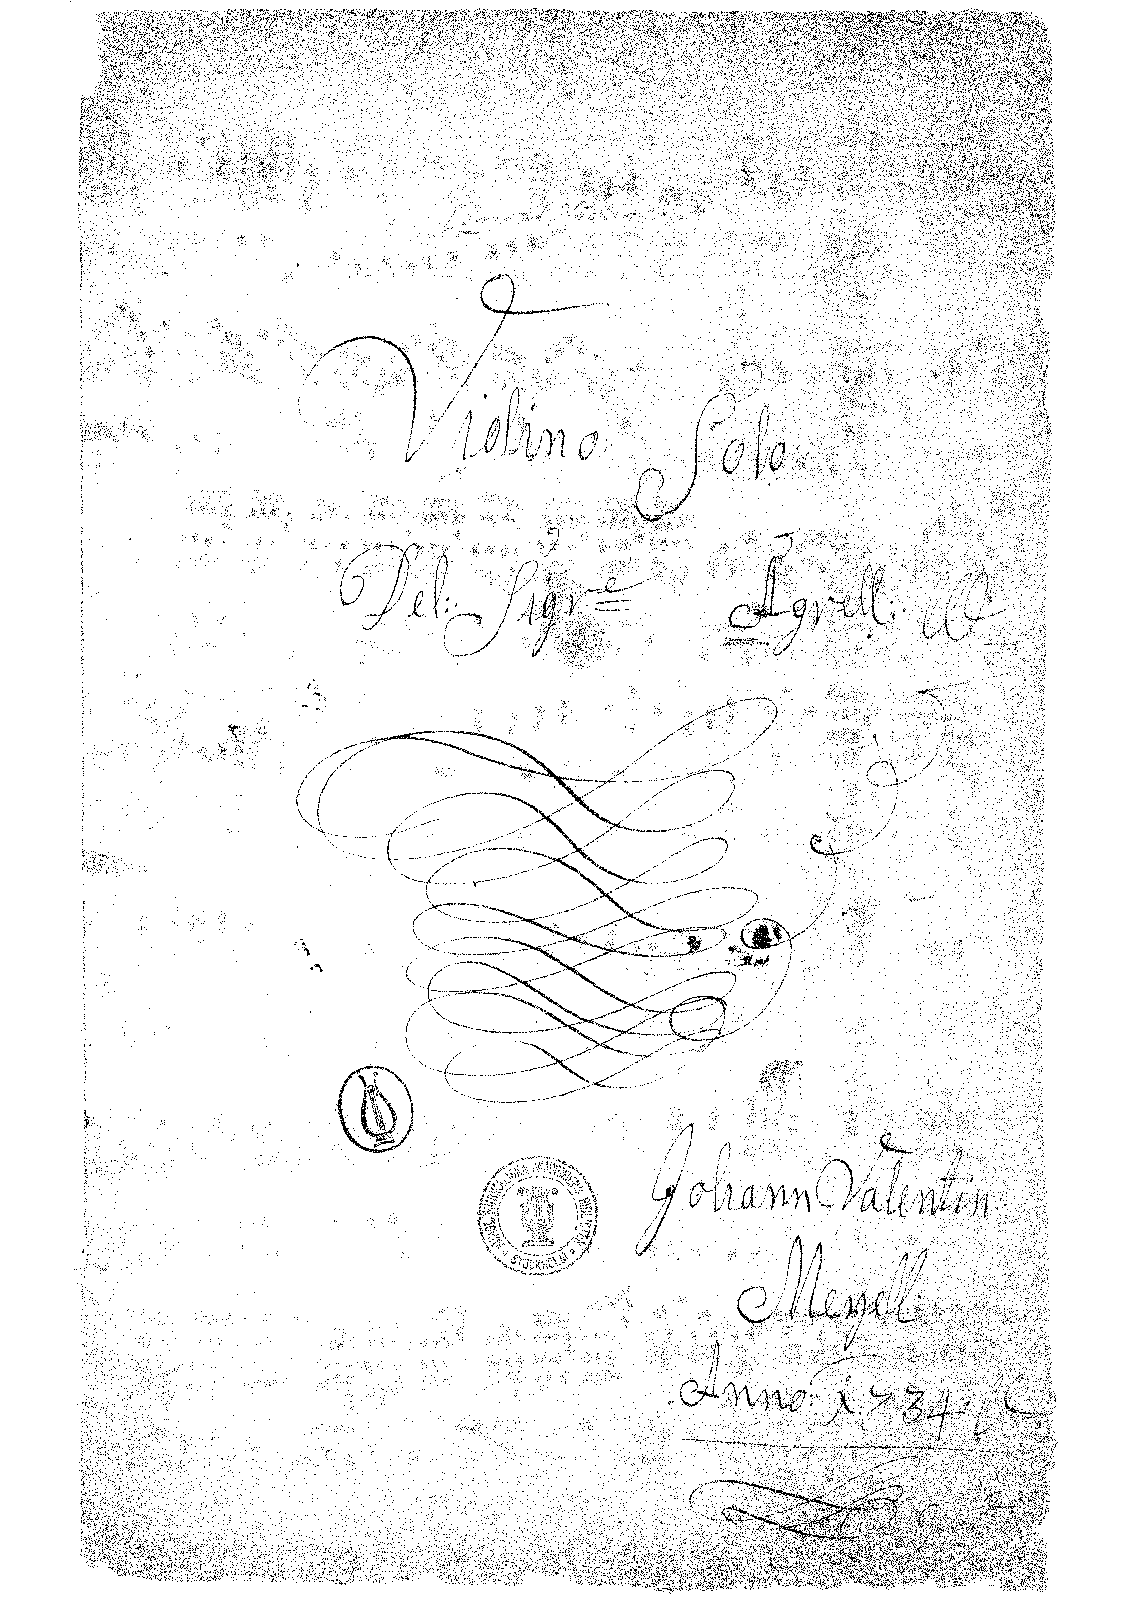 Violino Solo
Del: Sigre Agrell:
Johann Valentin
Meyell
Anno: 1734